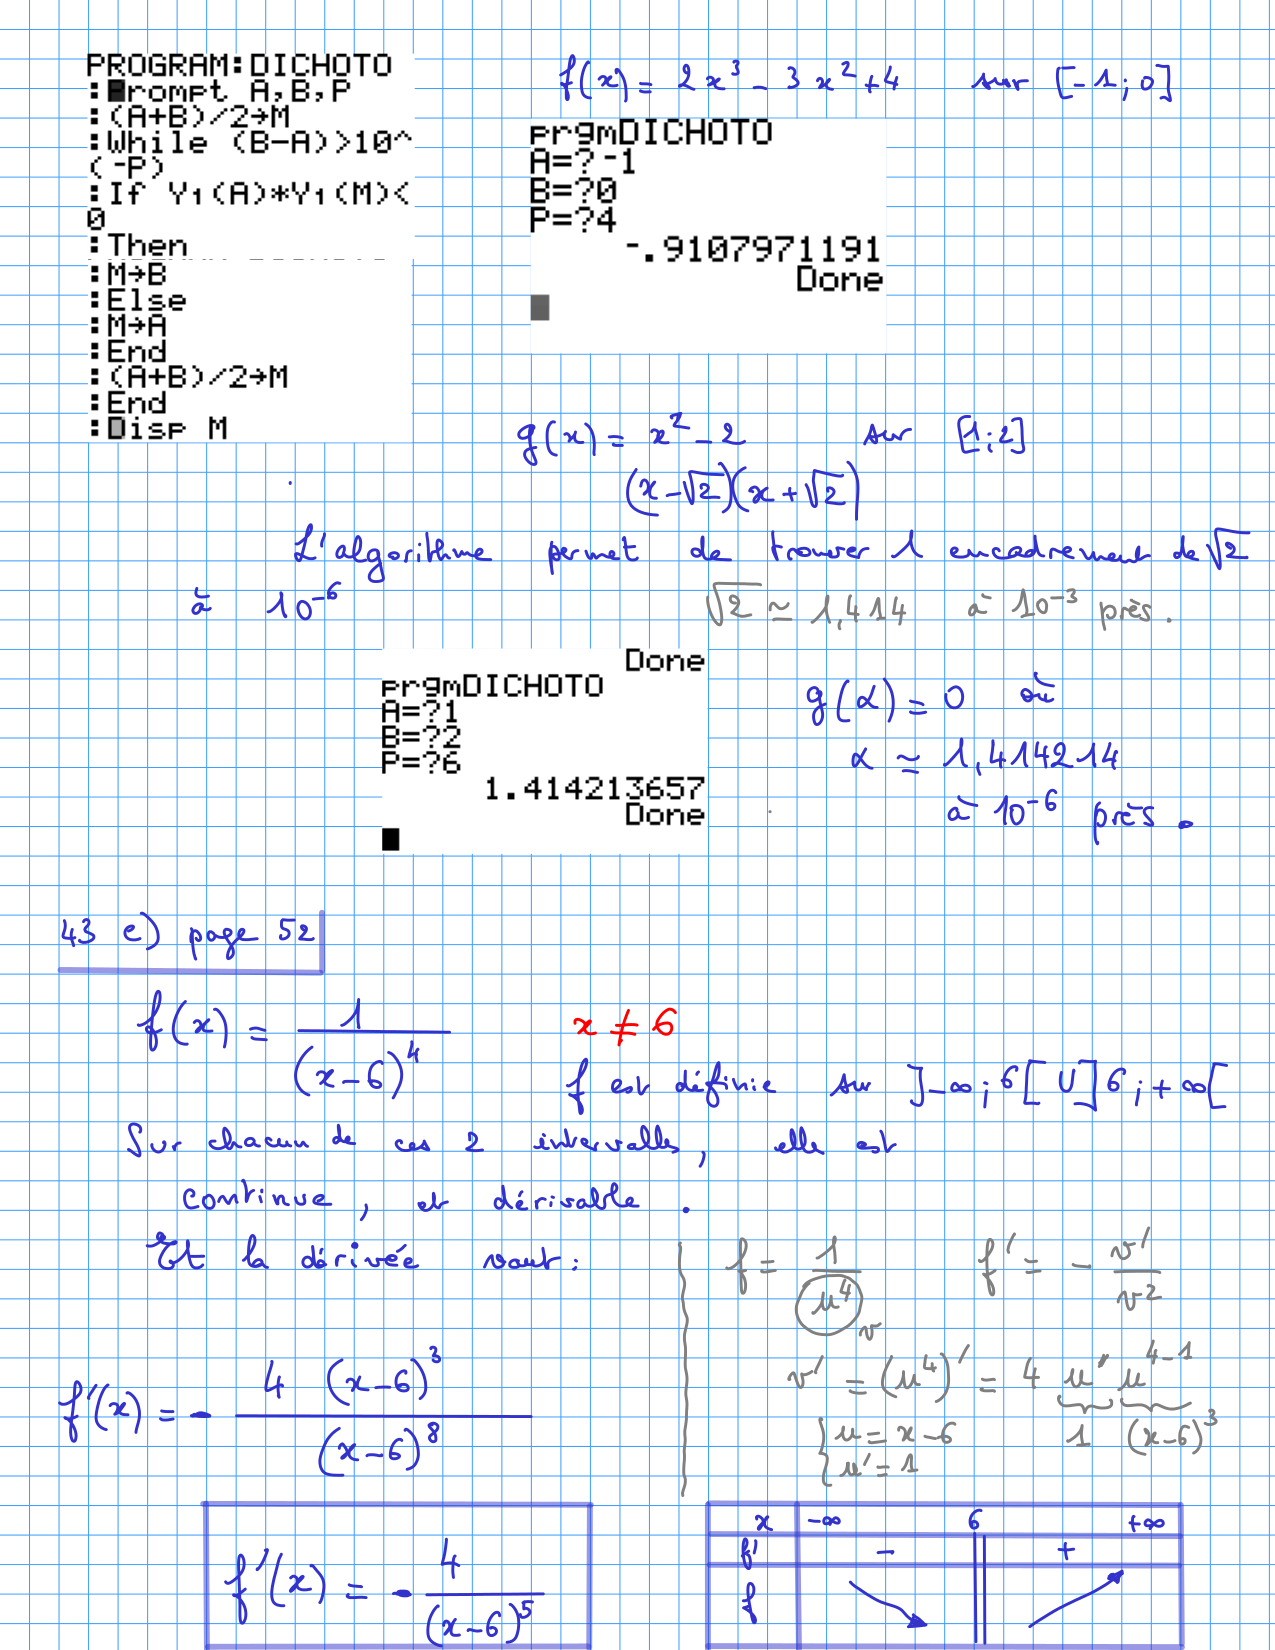 PROGRAM:DICHOTO
:Prompt A,B,P
:(A+B)/2→M
:While (B-A)>10^
(-P)
:If Y1(A)*Y1(M)<
0
:Then
:M→B
:Else
:M→A
:End
:(A+B)/2→M
:End
:Disp M
f(x) = 2x³ - 3x² + 4 sur [-1;0]
prgmDICHOTO
A=?-1
B=?0
P=?4
-.9107971191
Done
g(x) = x² - 2 sur [1;2]
(x-√2)(x+√2)
L'algorithme permet de trouver 1 encadrement de √2
à 10⁻⁶ √2 ≃ 1,414 à 10⁻³ près.
Done
prgmDICHOTO
A=?1
B=?2
P=?6
1.414213657
Done
g(α) = 0 où
α ≃ 1,414214
à 10⁻⁶ près.
43 e) page 52
f(x) = 1/(x-6)⁴ x ≠ 6
f est définie sur ]-∞;6[ U ]6;+∞[
Sur chacun de ces 2 intervalles, elle est
continue, et dérivable.
Et la dérivée vaut:
f = 1/u⁴ v f' = - v'/v²
v' = (u⁴)' = 4 u' u⁴⁻¹
u = x-6 1 (x-6)³
u' = 1
f'(x) = - 4 (x-6)³/(x-6)⁸
f'(x) = - 4/(x-6)⁵
x -∞ 6 +∞
f' - +
f